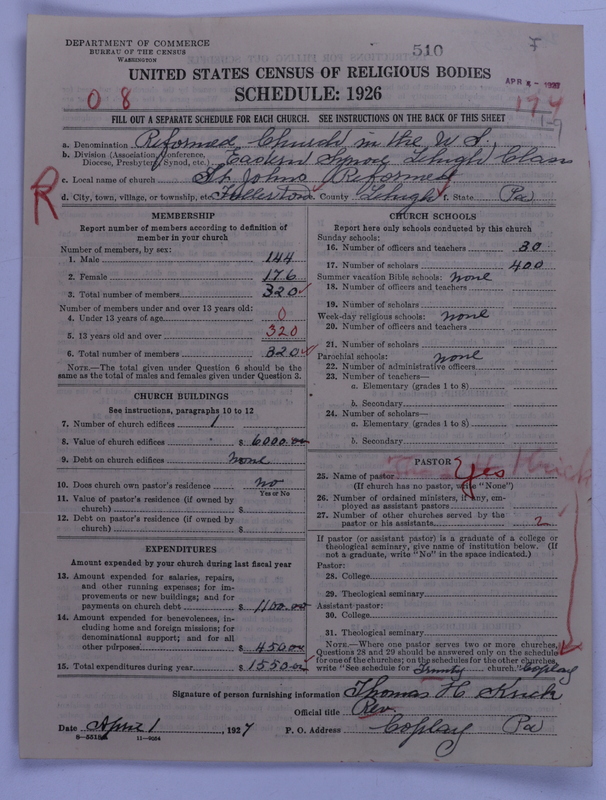 DEPARTMENT OF COMMERCE
BUREAU OF THE CENSUS
WASHINGTON
510
7
UNITED STATES CENSUS OF RELIGIOUS BODIES
SCHEDULE: 1926
APR 4 - 1927
0 8
174
FILL OUT A SEPARATE SCHEDULE FOR EACH CHURCH. SEE INSTRUCTIONS ON THE BACK OF THIS SHEET
a. Denomination Reformed Church in the U S,
b. Division (Association, Conference, Diocese, Presbytery, Synod, etc.) Eastern Synod Lehigh Class
c. Local name of church St. Johns (Reformed)
R
d. City, town, village, or township, etc. Fullerton e. County Lehigh f. State Pa
MEMBERSHIP
Report number of members according to definition of
member in your church
Number of members, by sex:
1. Male 144
2. Female 176
3. Total number of members 320
Number of members under and over 13 years old:
4. Under 13 years of age 0
5. 13 years old and over 320
6. Total number of members 320
NOTE.—The total given under Question 6 should be
same as the total of males and females given under Question 3.
CHURCH BUILDINGS
See instructions, paragraphs 10 to 12
7. Number of church edifices 1
8. Value of church edifices $ 6000.00
9. Debt on church edifices none
10. Does church own pastor's residence no
Yes or No
11. Value of pastor's residence (if owned by
church) $
12. Debt on pastor's residence (if owned by
church) $
EXPENDITURES
Amount expended by your church during last fiscal year
13. Amount expended for salaries, repairs,
and other running expenses; for im-
provements or new buildings; and for
payments on church debt $ 1100.00
14. Amount expended for benevolences, in-
cluding home and foreign missions; for
denominational support; and for all
other purposes $ 450.00
15. Total expenditures during year $ 1550.00
CHURCH SCHOOLS
Report here only schools conducted by this church
Sunday schools:
16. Number of officers and teachers 30
17. Number of scholars 400
Summer vacation Bible schools: none
18. Number of officers and teachers
19. Number of scholars
Week-day religious schools: none
20. Number of officers and teachers
21. Number of scholars
Parochial schools: none
22. Number of administrative officers
23. Number of teachers—
a. Elementary (grades 1 to 8)
b. Secondary
24. Number of scholars—
a. Elementary (grades 1 to 8)
b. Secondary
PASTOR
25. Name of pastor Yes
(If church has no pastor, write "None")
26. Number of ordained ministers, if any, em-
ployed as assistant pastors
27. Number of other churches served by the
pastor or his assistants 2
If pastor (or assistant pastor) is a graduate of a college or
theological seminary, give name of institution below. (If
not a graduate, write "No" in the space indicated.)
Pastor:
28. College
29. Theological seminary
Assistant pastor:
30. College
31. Theological seminary
NOTE.—Where one pastor serves two or more churches,
Questions 28 and 29 should be answered only on the schedule
for one of the churches; on the schedules for the other churches,
write "See schedule for Trinity church." Coplay
Signature of person furnishing information Thomas H Krick
Official title Rev.
Date April 1, 1927 P. O. Address Coplay Pa
8—5518a 11—9034